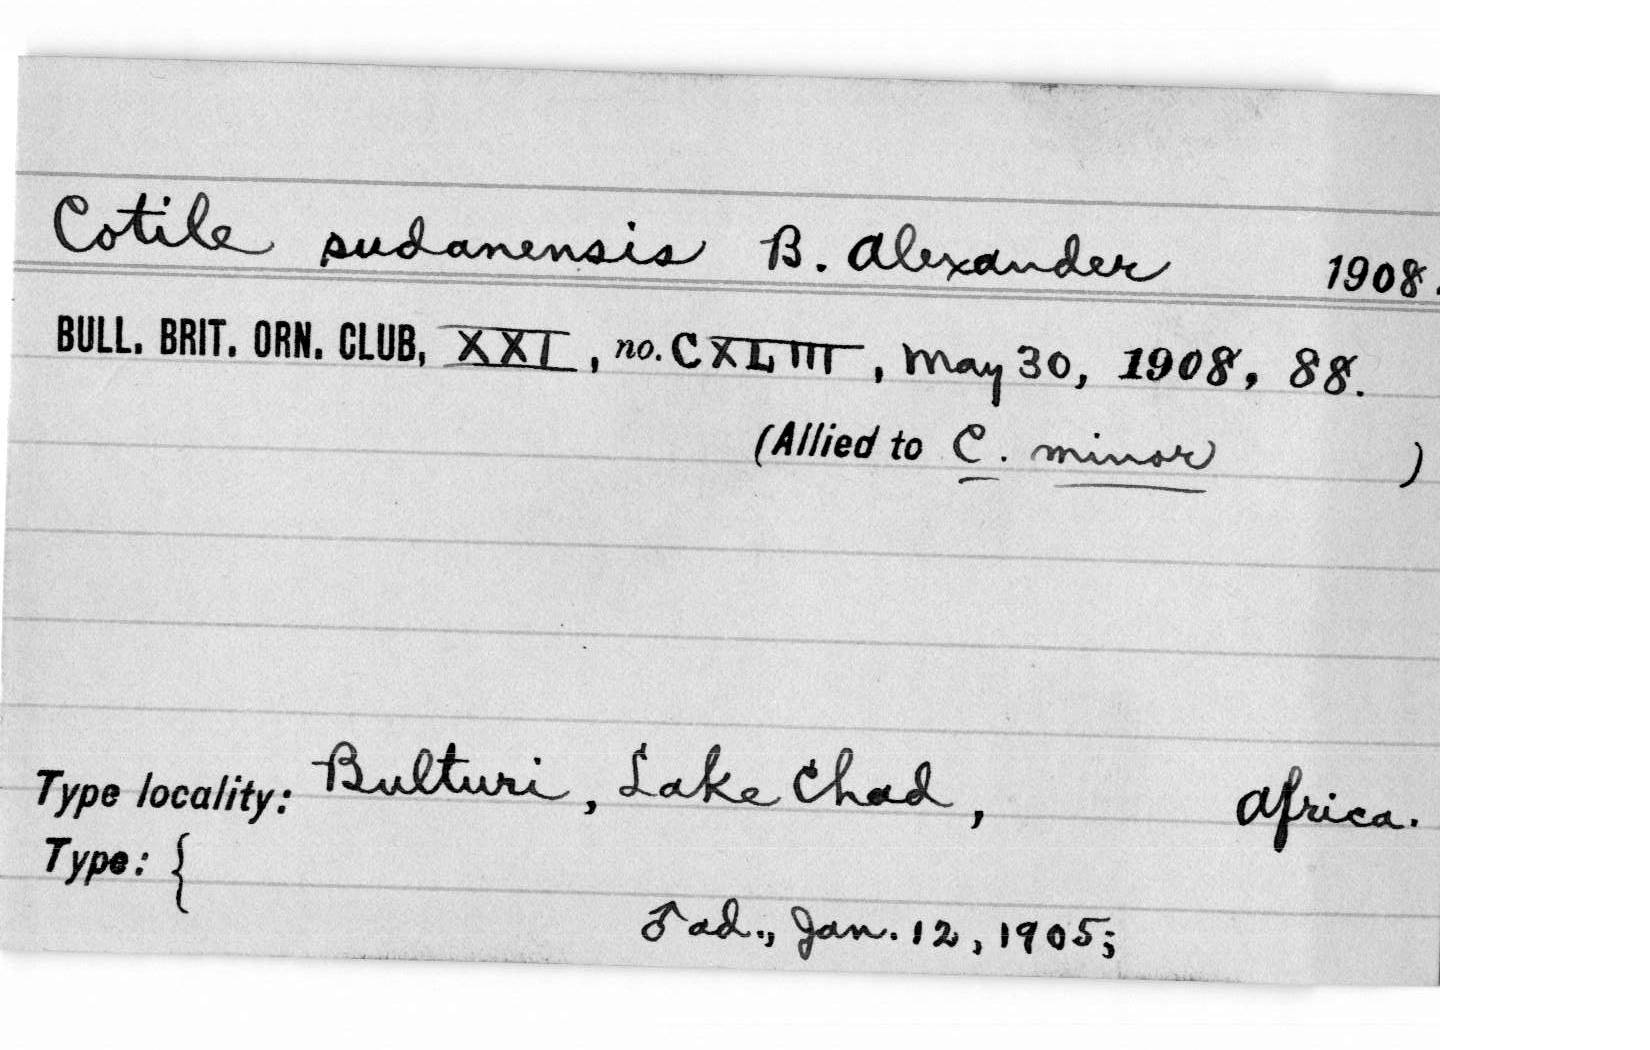 Cotile sudanensis B. Alexander 1908.
BULL. BRIT. ORN. CLUB, XXI, no. CXLIII, May 30, 1908, 88.
(Allied to C. minor )
Type locality: Bulturi, Lake Chad, Africa.
Type: {
♂ ad., Jan. 12, 1905;